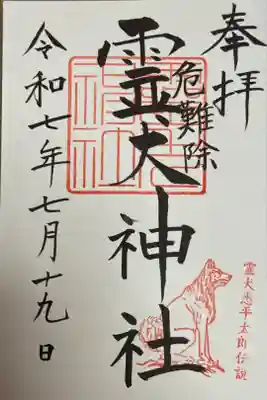 奉拝
危難除
霊犬神社
令和七年七月十九日
霊犬悉平太郎伝説